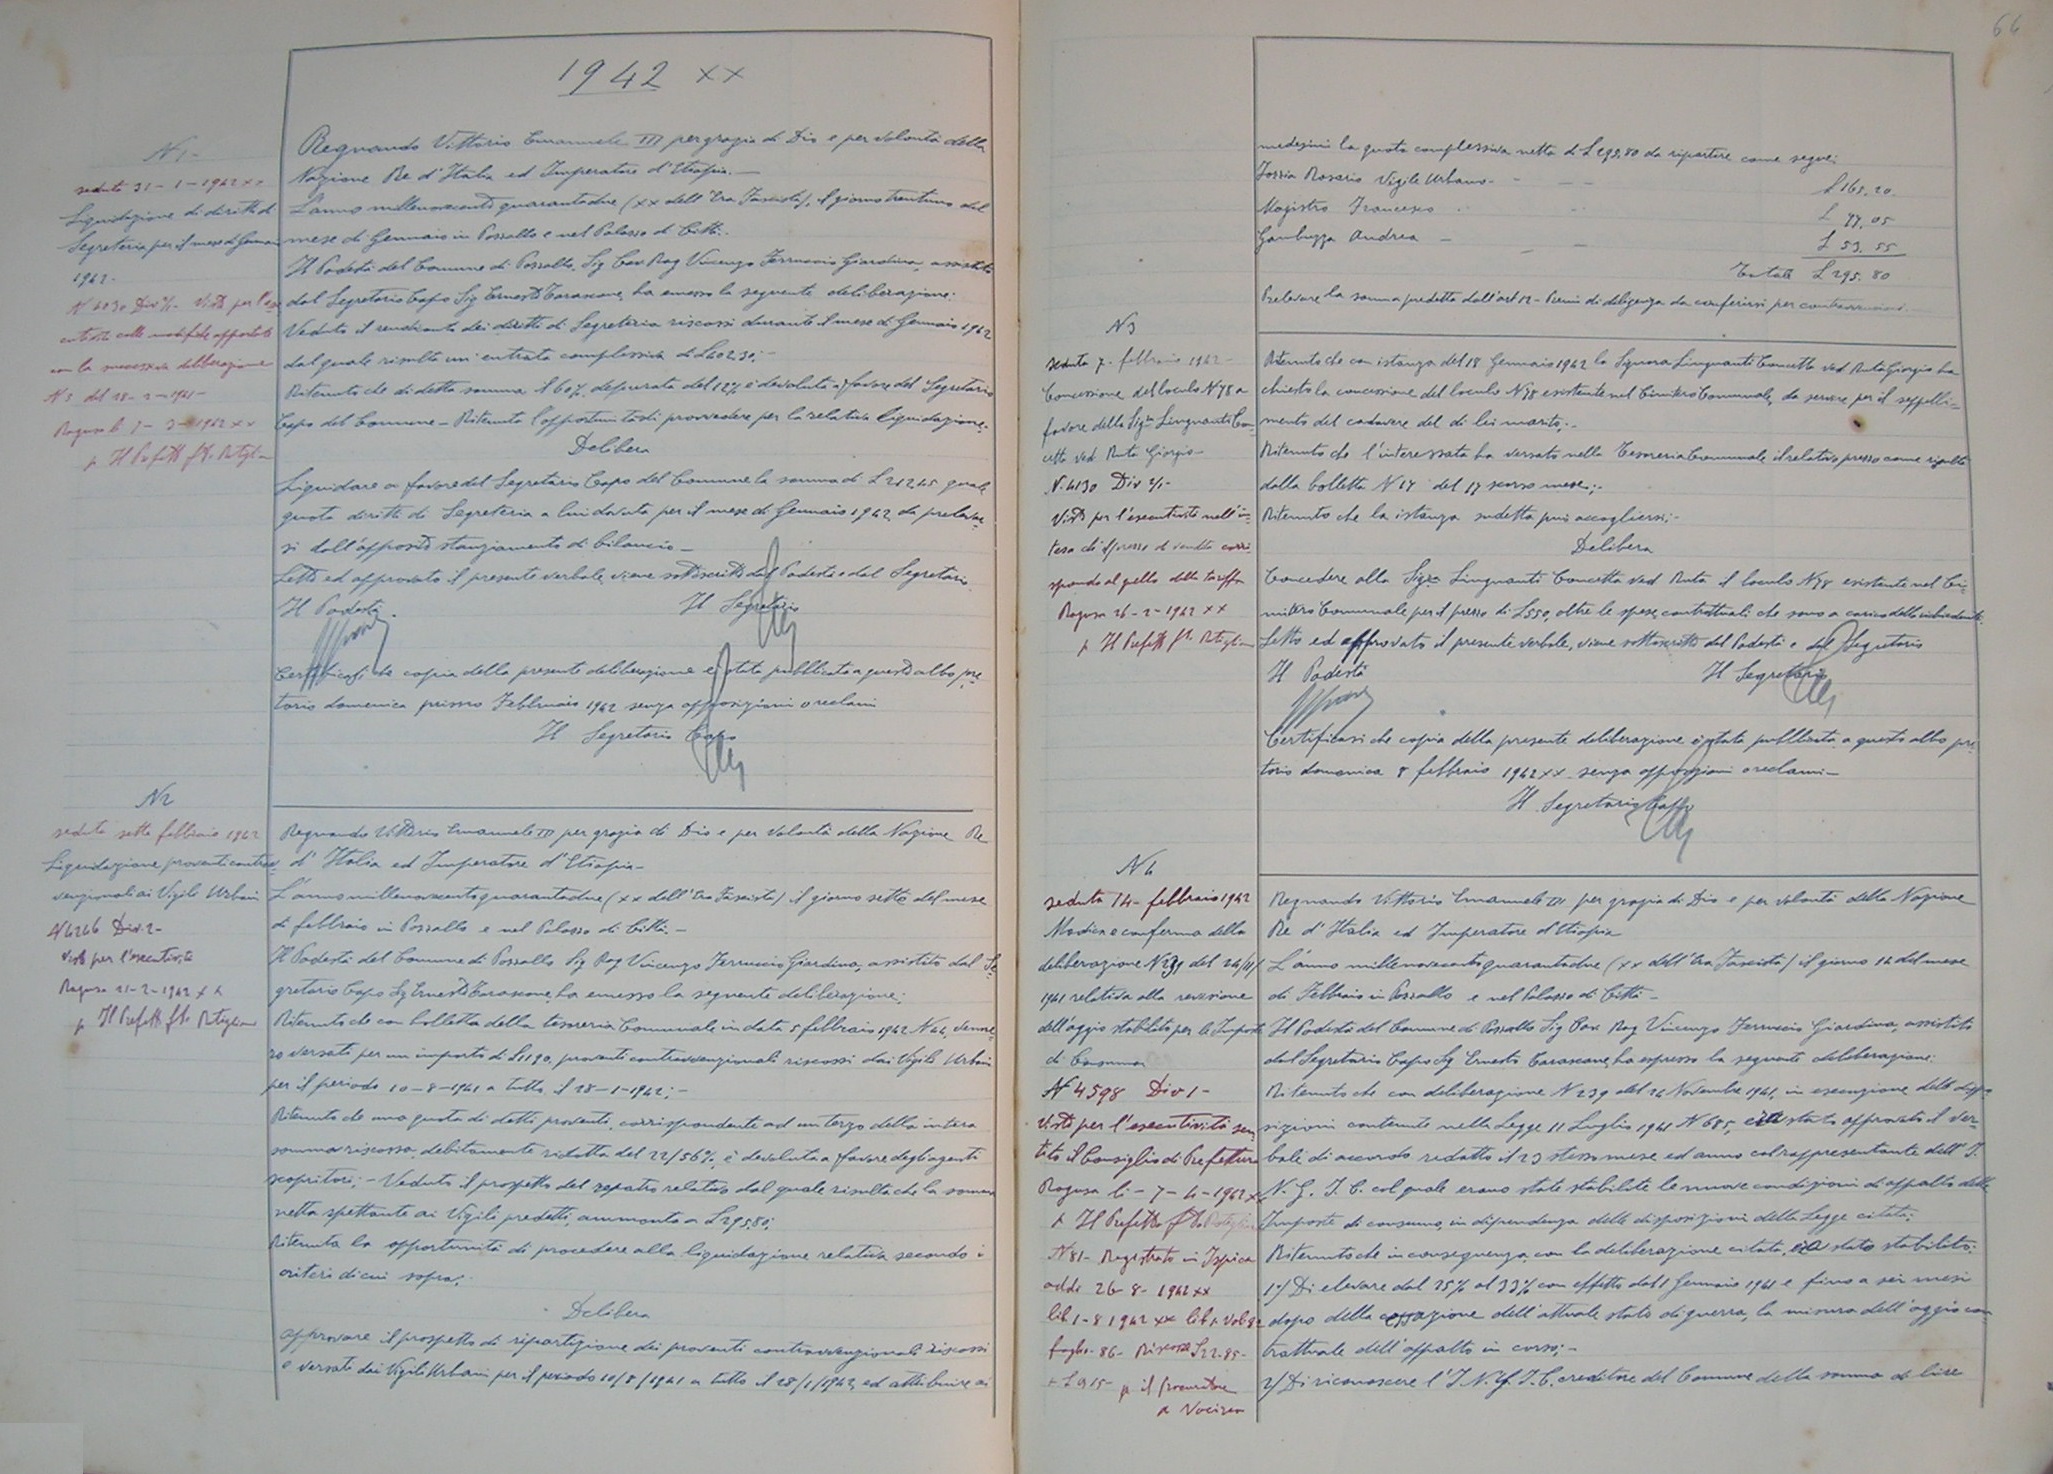 1942 XX
N 1-
seduta 31-1-1942 XX
Liquidazione di diritti di
Segreteria per il mese di Gennaio
1942-
N 4030 Div 2/1- Visto per l'ese
cutività colle modifiche apportate
con la successiva deliberazione
N 5 del 28-2-1941-
Ragusa li 7-3-1942 XX
p Il Prefetto
Regnando Vittorio Emanuele III per grazia di Dio e per volontà della
Nazione Re d'Italia ed Imperatore d'Etiopia.-
L'anno millenovecento quarantadue (XX dell'Era Fascista), il giorno trentuno del
mese di Gennaio in Pozzallo e nel Palazzo di Città.-
Il Podestà del Comune di Pozzallo, Sig Cav Rag Vincenzo Ferruccio Giardina, assistito
dal Segretario Capo Sig Ernesto Tarascone, ha emesso la seguente deliberazione:
Veduto il rendiconto dei diritti di Segreteria riscossi durante il mese di Gennaio 1942
dal quale risulta un'entrata complessiva di L 402,30;-
Ritenuto che di detta somma il 60% depurata del 12% è devoluta a favore del Segretario
Capo del Comune - Ritenuto l'opportunità di provvedere per la relativa liquidazione.
Delibera
Liquidare a favore del Segretario Capo del Comune la somma di L 212,45 quale
quota diritti di Segreteria a lui dovuta per il mese di Gennaio 1942, da prelevar
si dall'apposito stanziamento di bilancio-
Letto ed approvato il presente verbale, viene sottoscritto dal Podestà e dal Segretario
Il Podestà Il Segretario
Certificasi che copia della presente deliberazione è stata pubblicata a questo albo pre
torio domenica primo Febbraio 1942 senza opposizioni o reclami
Il Segretario Capo
N 2
seduta sette febbraio 1942
Liquidazione proventi contrav
venzionali ai Vigili Urbani
N 4246 Div. 2-
Visto per l'esecutività
Ragusa 21-2-1942 XX
p Il Prefetto
Regnando Vittorio Emanuele III per grazia di Dio e per volontà della Nazione Re
d'Italia ed Imperatore d'Etiopia-
L'anno millenovecentoquarantadue (XX dell'Era Fascista) il giorno sette del mese
di febbraio in Pozzallo e nel Palazzo di Città.-
Il Podestà del Comune di Pozzallo Sig Rag Vincenzo Ferruccio Giardina, assistito dal Se
gretario Capo Sig Ernesto Tarascone, ha emesso la seguente deliberazione:
Ritenuto che con bolletta della tesoreria Comunale in data 5 febbraio 1942 N 44, venne
ro versati per un importo di L 1190, proventi contravvenzionali riscossi dai Vigili Urbani
per il periodo 10-8-1941 a tutto il 28-1-1942;-
Ritenuto che una quota di detti proventi, corrispondente ad un terzo della intera
somma riscossa, debitamente ridotta del 22/56%, è devoluta a favore degli agenti
scopritori;- Veduto il prospetto del reparto relativo dal quale risulta che la somma
netta spettante ai Vigili predetti, ammonta a L 295,80;
Ritenuta la opportunità di procedere alla liquidazione relativa secondo i
criteri di cui sopra;
Delibera
approvare il prospetto di ripartizione dei proventi contravvenzionali riscossi
e versati dai Vigili Urbani per il periodo 10/8/1941 a tutto il 28/1/1942, ed attribuire ai
66
medesimi la quota complessiva netta di L 295,80 da ripartire come segue:
Rosario Vigile Urbano- L 165,20
Magistro Francesco L 77,05
Gambuzza Andrea - L 53,55
Totale L 295,80
Prelevare la somma predetta dall'art 12- Premi di diligenza da conferirsi per contravvenzioni.
N 3
seduta 7- febbraio 1942-
Concessione del loculo N 78 a
favore della Sigra Linguanti Con
cetta ved Ruta Giorgio-
N. 4130 Div 2/1-
Visto per l'esecutività nell'in
tesa che il prezzo di vendita corri
sponde al quello della tariffa
Ragusa 26-2-1942 XX
p Il Prefetto
Ritenuto che con istanza del 18 Gennaio 1942 la Signora Linguanti Concetta ved Ruta Giorgio ha
chiesto la concessione del loculo N 78 esistente nel Cimitero Comunale, da servire per il seppelli-
mento del cadavere del di lei marito;-
Ritenuto che l'interessata ha versato nella Tesoreria Comunale il relativo prezzo come risulta
dalla bolletta N 17 del 17 scorso mese;-
Ritenuto che la istanza sudetta può accogliersi;-
Delibera
Concedere alla Sigra Linguanti Concetta ved Ruta il loculo N 78 esistente nel Ci-
mitero Comunale per il prezzo di L 550, oltre le spese contrattuali che sono a carico della richiedente
Letto ed approvato il presente verbale, viene sottoscritto dal Podestà e dal Segretario
Il Podestà Il Segretario
Certificasi che copia della presente deliberazione è stata pubblicata a questo albo pre
torio domenica 8 febbraio 1942 XX senza opposizioni o reclami-
Il Segretario Capo
N 4
seduta 14- febbraio 1942
Modica e conferma della
deliberazione N 239 del 24/11/
1941 relativa alla revisione
dell'aggio stabilito per le Imposte
di Consumo
N 4598 Div 1-
Visto per l'esecutività sen
tito il Consiglio di Prefettura
Ragusa li- 7-4-1942 XX
p Il Prefetto
N 81- Registrato in Ispica
addi 26-8-1942 XX
lib 1-8 1942 XX lib 1 Vol 82
foglio- 86- Riscosse L 22.85-
+ L 9.15- p il procuratore
Regnando Vittorio Emanuele III per grazia di Dio e per volontà della Nazione
Re d'Italia ed Imperatore d'Etiopia
L'anno millenovecentoquarantadue (XX dell'Era Fascista) il giorno 14 del mese
di Febbraio in Pozzallo e nel Palazzo di Città-
Il Podestà del Comune di Pozzallo Sig Cav. Rag Vincenzo Ferruccio Giardina, assistito
dal Segretario Capo Sig Ernesto Tarascone, ha espresso la seguente deliberazione:
Ritenuto che con deliberazione N 239 del 24 Novembre 1941, in esecuzione delle dispo
sizioni contenute nella Legge 11 Luglio 1941 N 685, era stato approvato il ver-
bale di accordo redatto il 23 stesso mese ed anno col rappresentante dell'I.
N. G. I. C. col quale erano state stabilite le nuove condizioni di appalto delle
Imposte di consumo, in dipendenza delle disposizioni della Legge citata;
Ritenuto che in conseguenza, con la deliberazione citata, era stato stabilito:
1°/ Di elevare dal 25% al 33% con effetto dal 1 Gennaio 1941 e fino a sei mesi
dopo della cessazione dell'attuale stato di guerra, la misura dell'aggio con
trattuale dell'appalto in corso;-
2/ Di riconoscere l'I.N.G.I.C. creditore del Comune della somma di lire